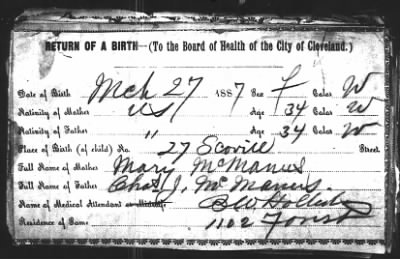 RETURN OF A BIRTH—(To the Board of Health of the City of Cleveland.)
Date of Birth Mch 27 1887 Sex F Color W
Nativity of Mother US Age 34 Color W
Nativity of Father " Age 34 Color W
Place of Birth (of child) No. 27 Scovill Street
Full Name of Mother Mary McManus
Full Name of Father Chas. J. McManus.
Name of Medical Attendant or Midwife BW Holliste
Residence of Same 1102 Forest